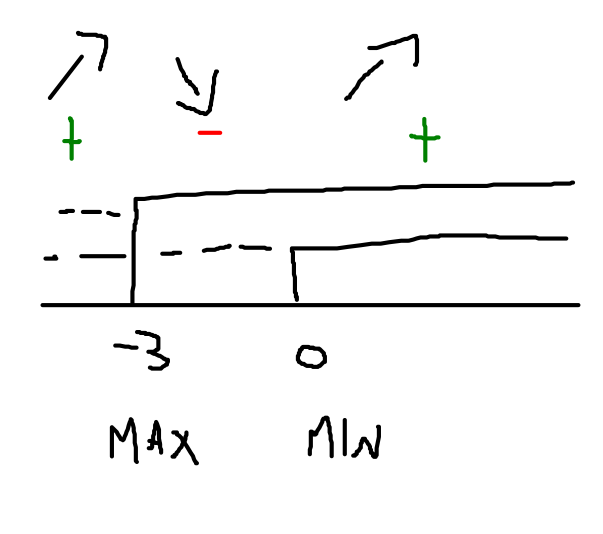 + − +
-3 0
MAX MIN